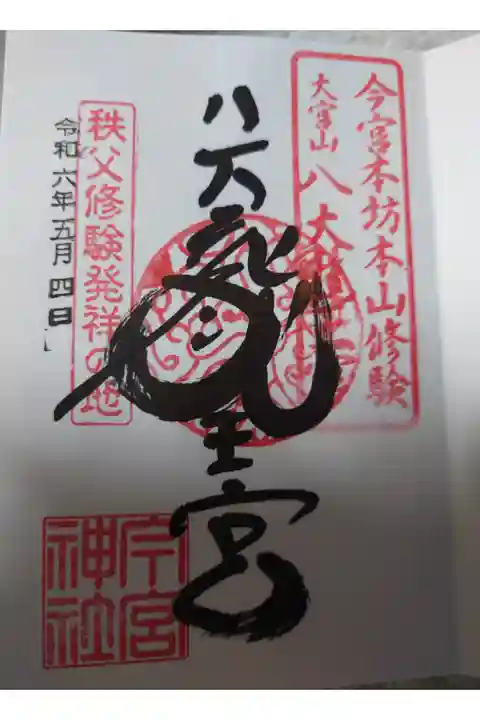 今宮本坊本山修験
大宮山 八大
八大龍王宮
秩父修験発祥の地
令和六年五月四日
今宮
神社